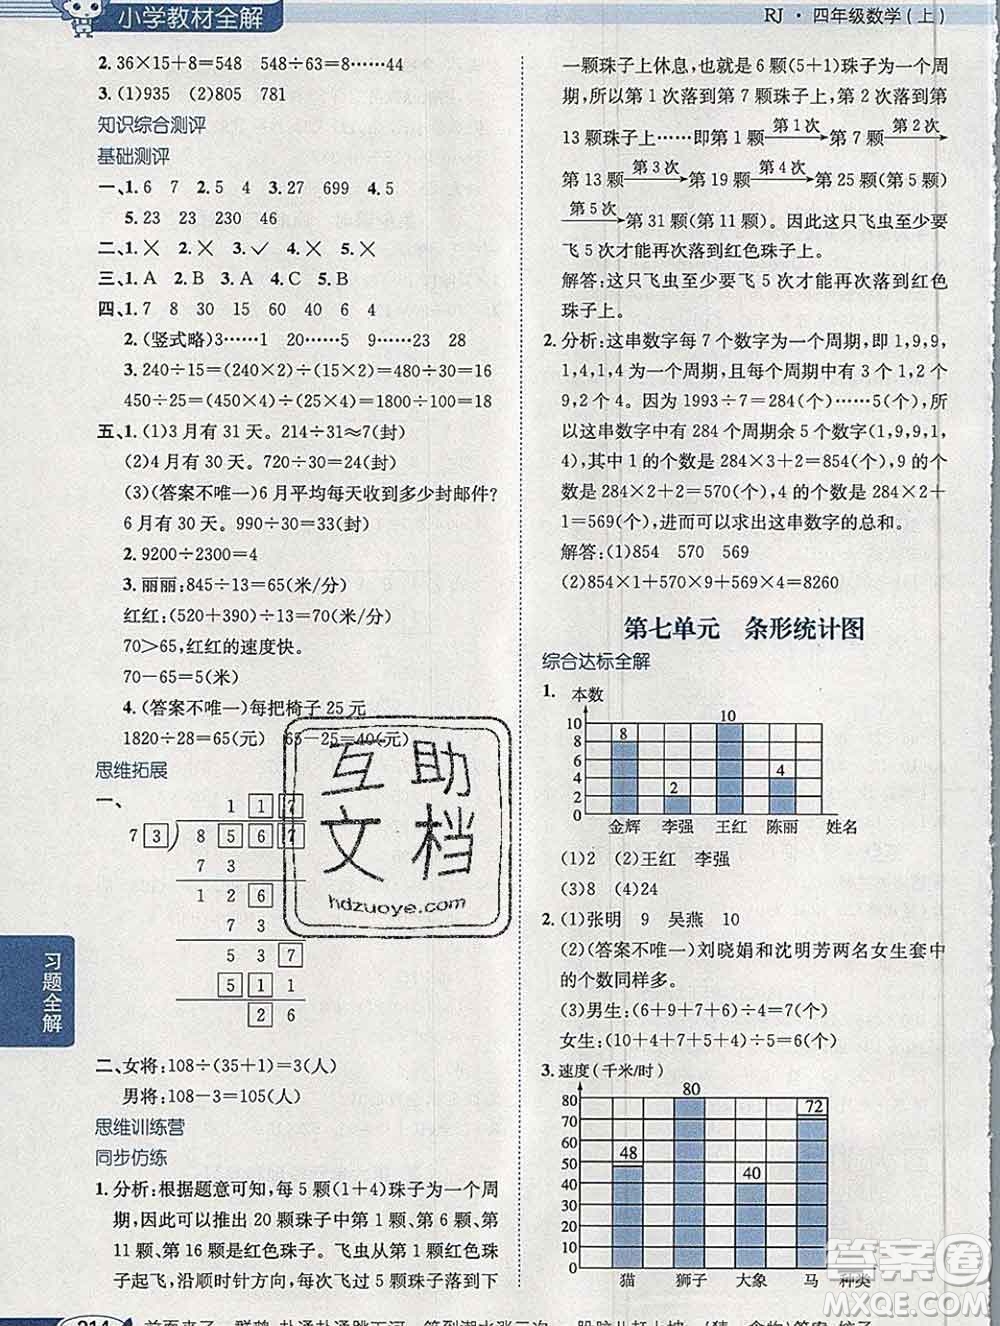 小学教材全解
RJ · 四年级数学(上)
2. 36×15+8=548 548÷63=8……44
3. (1)935 (2)805 781
知识综合测评
基础测评
一、1. 6 7 2. 5 4 3. 27 699 4. 5
5. 23 23 230 46
二、1. × 2. × 3. ✓ 4. × 5. ×
三、1. A 2. B 3. A 4. C 5. B
四、1. 7 8 30 15 60 40 6 4
2. (竖式略)3……1 20……5 9……23 28
3. 240÷15=(240×2)÷(15×2)=480÷30=16
450÷25=(450×4)÷(25×4)=1800÷100=18
五、1. (1)3月有31天。214÷31≈7(封)
(2)4月有30天。720÷30=24(封)
(3)(答案不唯一)6月平均每天收到多少封邮件?
6月有30天。990÷30=33(封)
2. 9200÷2300=4
3. 丽丽:845÷13=65(米/分)
红红:(520+390)÷13=70(米/分)
70>65,红红的速度快。
70-65=5(米)
4. (答案不唯一)每把椅子25元
1820÷28=65(元) 65-25=40(元)
思维拓展
一、
1 1 7
7 3 8 5 6 7
7 3
1 2 6
7 3
5 3 7
5 1 1
2 6
二、女将:108÷(35+1)=3(人)
男将:108-3=105(人)
思维训练营
同步仿练
1. 分析:根据题意可知,每5颗(1+4)珠子为一个周
期,因此可以推出20颗珠子中第1颗、第6颗、第
11颗、第16颗是红色珠子。飞虫从第1颗红色珠
子起飞,沿顺时针方向,每次飞过5颗珠子落到下
一颗珠子上休息,也就是6颗(5+1)珠子为一个周
期,所以第1次落到第7颗珠子上,第2次落到第
13颗珠子上……即第1颗 第1次 第7颗 第2次
第13颗 第3次 第19颗 第4次 第25颗(第5颗)
第5次 第31颗(第11颗)。因此这只飞虫至少要
飞5次才能再次落到红色珠子上。
解答:这只飞虫至少要飞5次才能再次落到红色
珠子上。
2. 分析:这串数字每7个数字为一个周期,即1,9,9,
1,4,1,4为一个周期,且每个周期中有3个1,2个
9,2个4。因为1993÷7=284(个)……5(个),所
以这串数字中有284个周期余5个数字(1,9,9,1,
4),其中1的个数是284×3+2=854(个),9的个
数是284×2+2=570(个),4的个数是284×2+
1=569(个),进而可以求出这串数字的总和。
解答:(1)854 570 569
(2)854×1+570×9+569×4=8260
第七单元 条形统计图
综合达标全解
1. 本数
10
9
8
7
6
5
4
3
2
1
0
8 2 10 4
金辉 李强 王红 陈丽 姓名
(1)2 (2)王红 李强
(3)8 (4)24
2. (1)张明 9 吴燕 10
(2)(答案不唯一)刘晓娟和沈明芳两名女生套中
的个数同样多。
(3)男生:(6+9+7+6+7)÷5=7(个)
女生:(10+4+4+7+5+4+1)÷7=5(个)
3. 速度(千米/时)
80
70
60
50
40
30
20
10
0
48 80 40 72
猫 狮子 大象 马 种类
习题全解
互助
文档
hdzuoye.com
答案圈
MXQE.COM
214